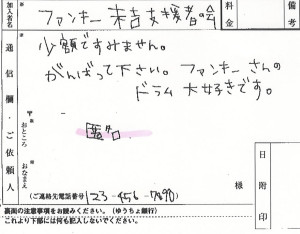 加入者名
ファンキー末吉支援者の会
料金
備考
通信欄・ご依頼人
少額ですみません。
がんばって下さい。ファンキーさんの
ドラム大好きです。
おところ
おなまえ
匿名
様
(ご連絡先電話番号 123-456-7890)
日附印
裏面の注意事項をお読みください。(ゆうちょ銀行)
これより下部には何も記入しないでください。